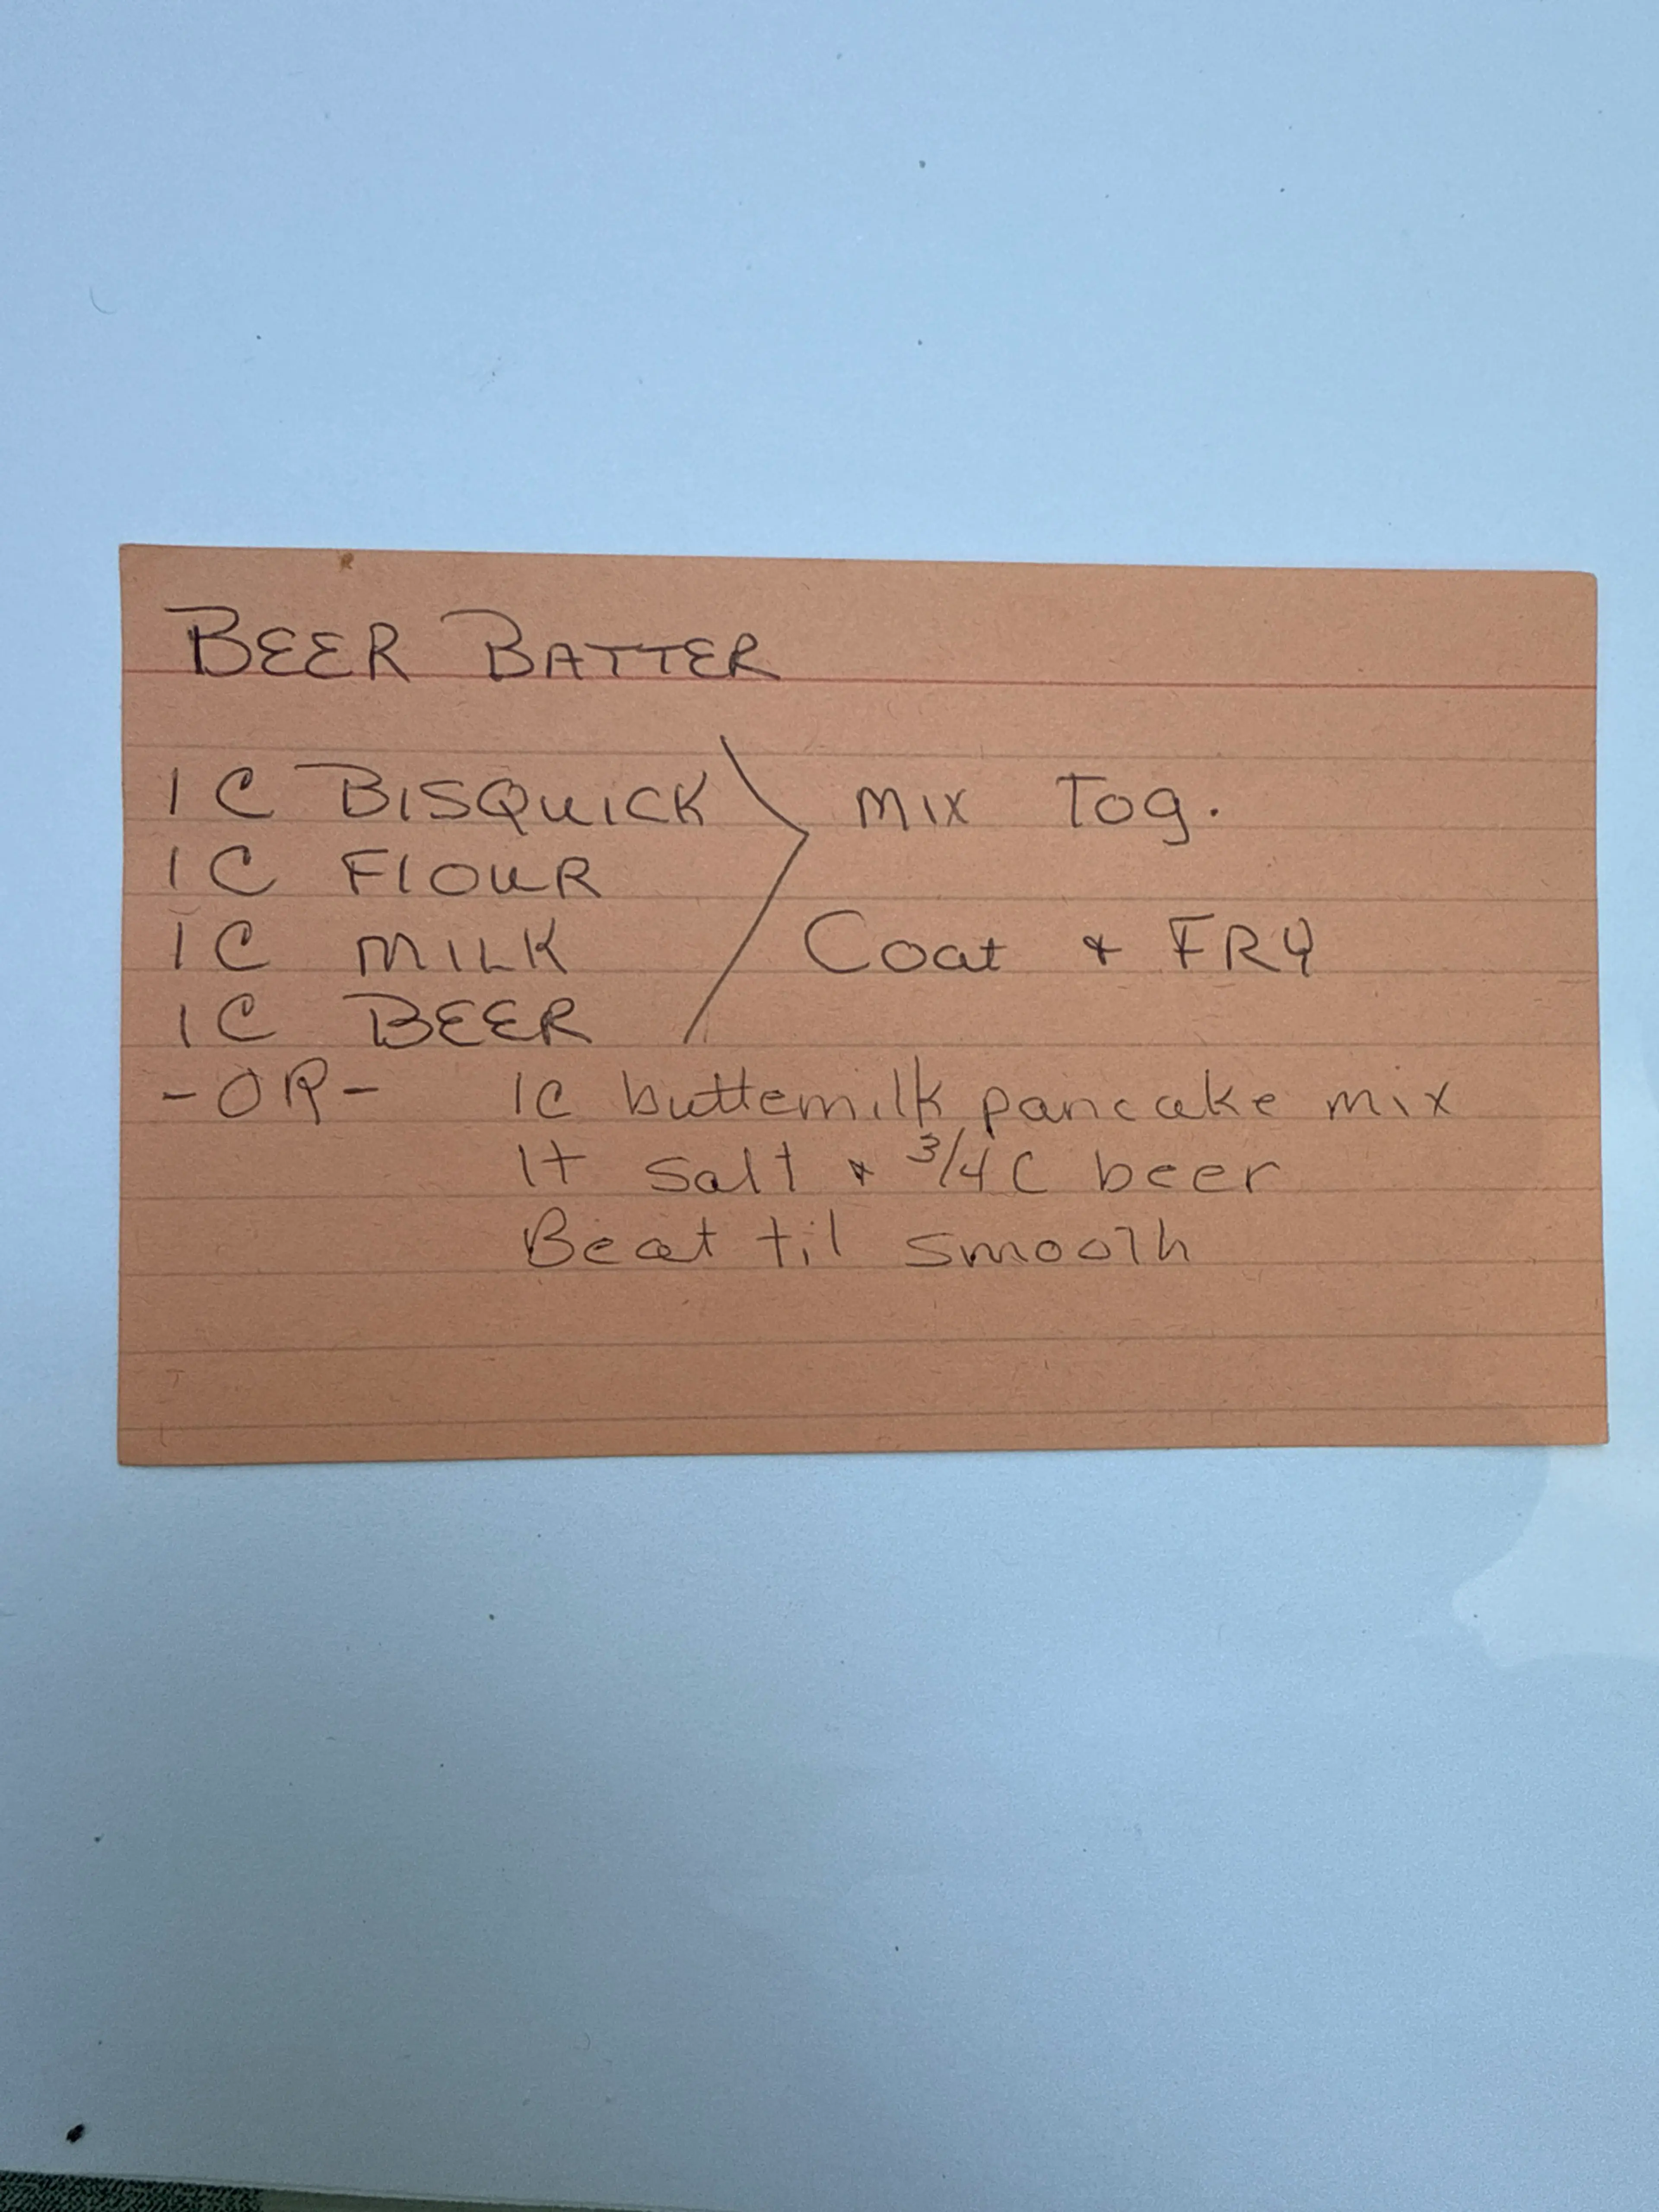 BEER BATTER
1 C BISQUICK
1 C FLOUR
1 C MILK
1 C BEER
MIX TOG.
Coat & FRY
-OR- 1C buttemilk pancake mix
1t salt & 3/4 C beer
Beat til smooth